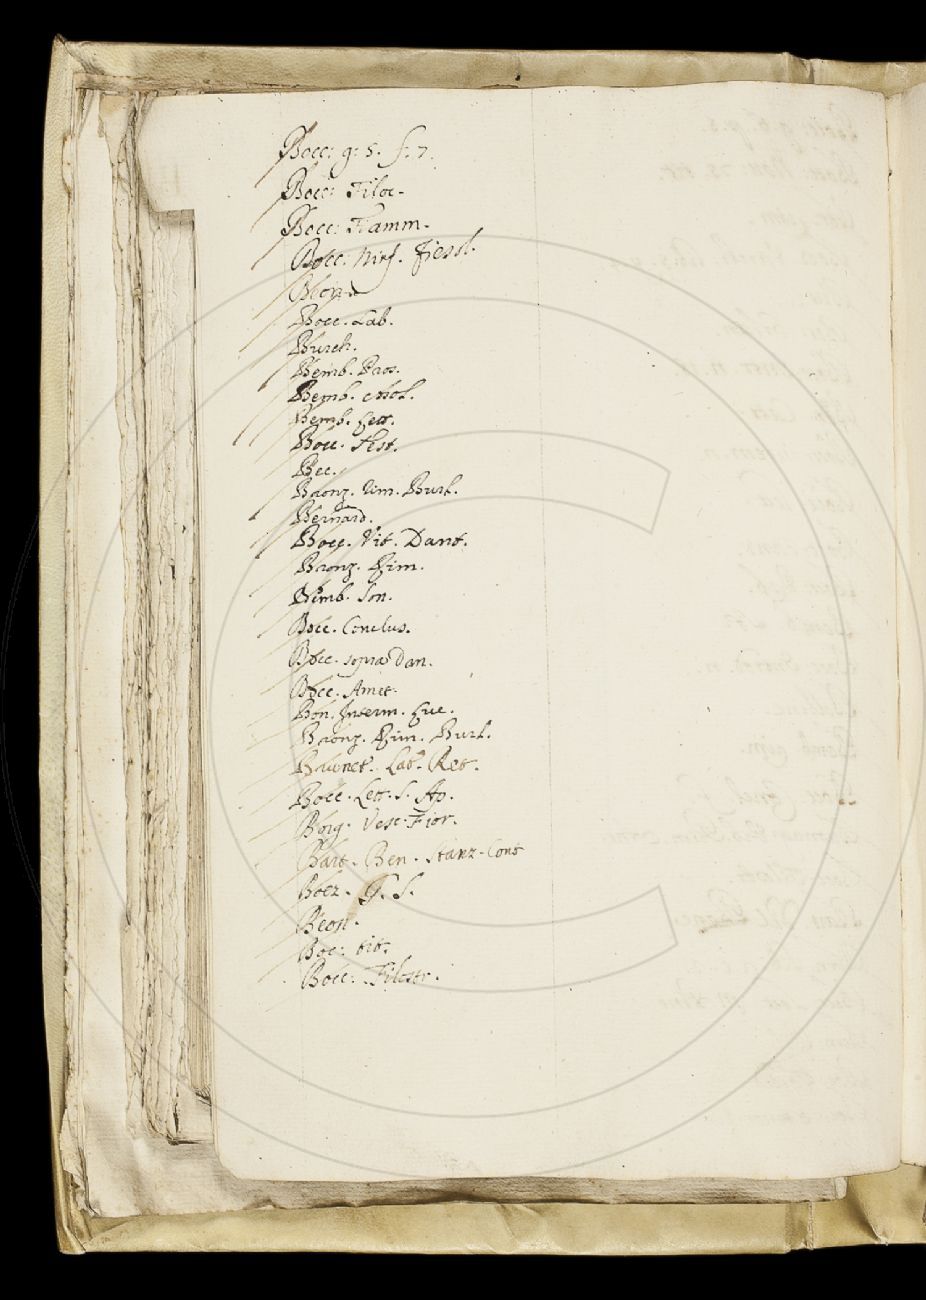 Bocc: g: 5. f. 7.
Bocc: Filoc.
Bocc: Fiamm.
Bocc: Ninf. Fiesol.
Bocc. Lab.
Burch.
Bemb. Pros.
Bemb. Asol.
Bemb. Lett.
Bocc. Test.
Bec.
Bronz. Rim. Burl.
Bernard.
Bocc. Vit. Dant.
Bronz. Rim.
Bemb. Son.
Bocc. Conclus.
Bocc. sopra Dan.
Bocc. Amet.
Bon. Inserm. Luc.
Bronz. Rim. Burl.
Brunet. Ret.
Bocc. Lett. S. Ap.
Borg. Vesc. Fior.
Ben.
Boez. G. S.
Bocc: Filostr.